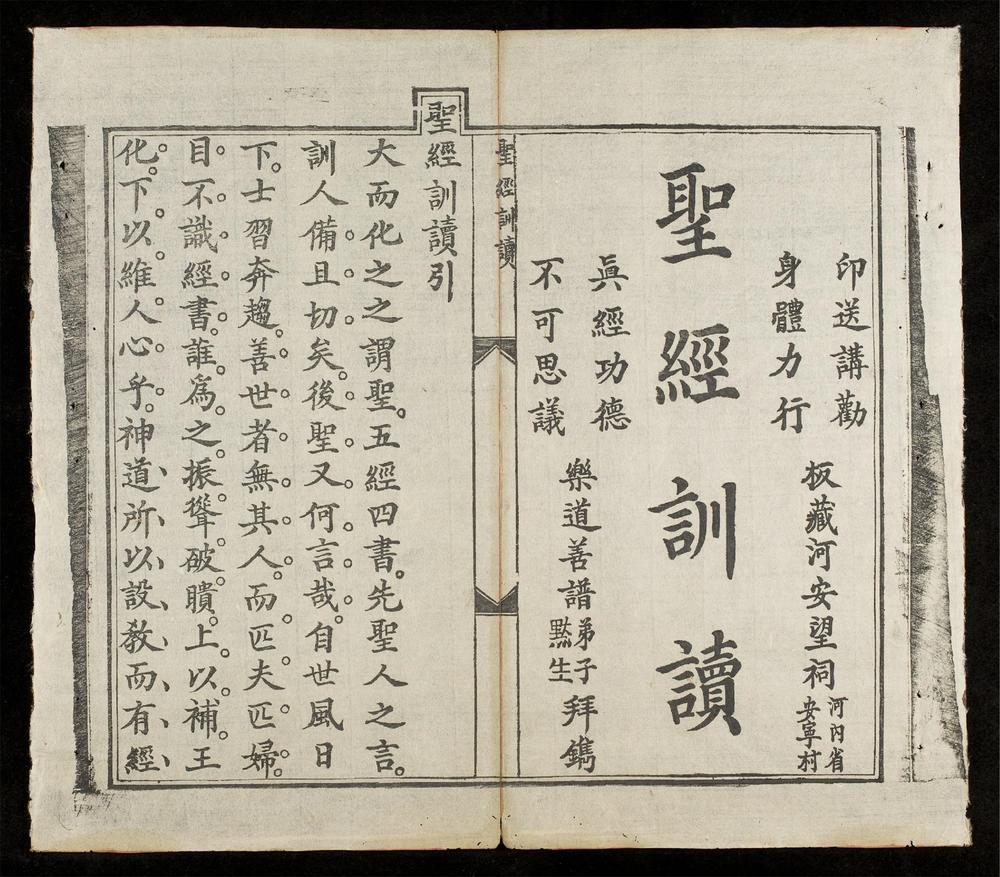 印送講勸
身體力行
板藏河安望祠
河內省
安寧村
聖經訓讀
眞經功德
不可思議
樂道善譜
弟子
黙生
拜鐫
聖經訓讀
聖經訓讀引
大而化之之謂聖。五經四書。先聖人之言。
訓人備且切矣。後聖又何言哉。自世風日
下。士習奔趨。善世者無其人。而匹夫匹婦。
目不識經書。誰爲之振聳破瞶。上以補王
化。下以維人心乎。神道所以設教而有經